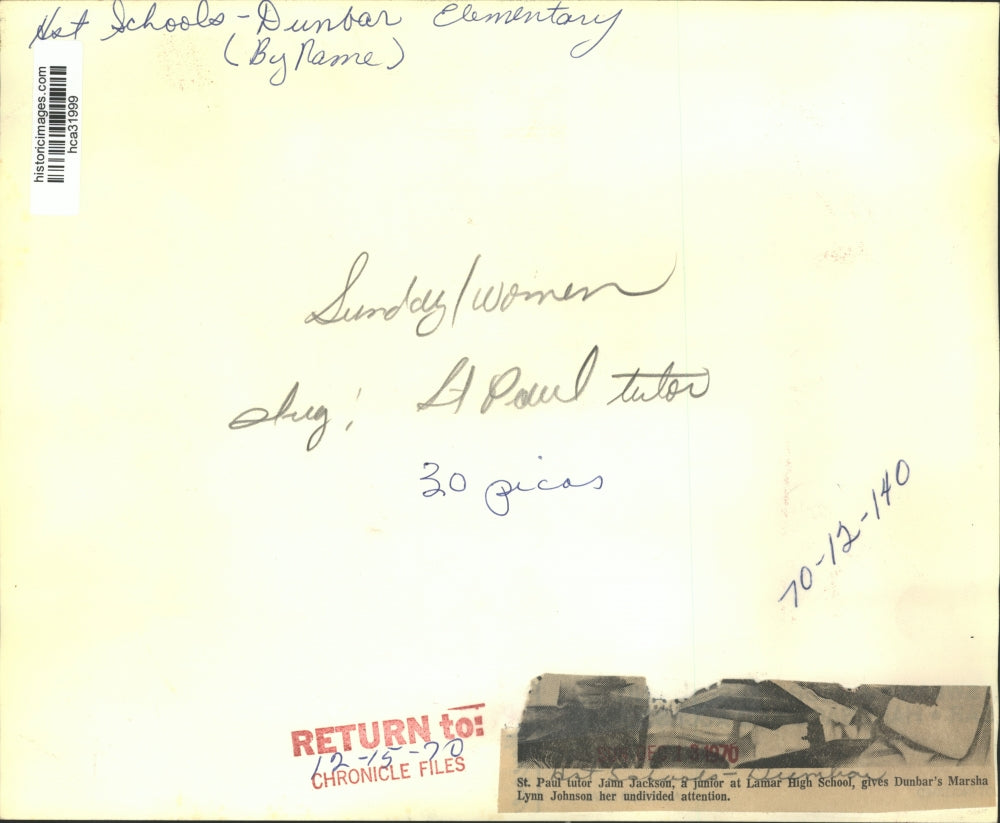 Hst Schools - Dunbar Elementary
(By Name)
historicimages.com
hca31999
Sunday/women
slug: St Paul tutor
30 picas
70-12-140
RETURN to:
12-15-70
CHRONICLE FILES
1970
Hst Schools - Dunbar
St. Paul tutor Jann Jackson, a junior at Lamar High School, gives Dunbar's Marsha
Lynn Johnson her undivided attention.